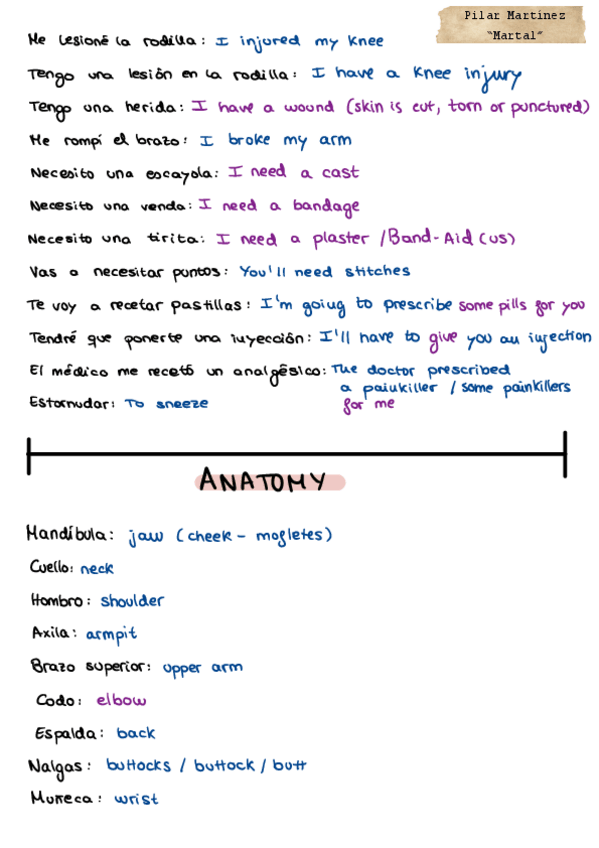 Pilar Martinez
"Martal"
Me lesioné la rodilla: I injured my knee
Tengo una lesión en la rodilla: I have a knee injury
Tengo una herida: I have a wound (skin is cut, torn or punctured)
Me rompí el brazo: I broke my arm
Necesito una escayola: I need a cast
Necesito una venda: I need a bandage
Necesito una tirita: I need a plaster /Band-Aid (US)
Vas a necesitar puntos: You'll need stitches
Te voy a recetar pastillas: I'm going to prescribe some pills for you
Tendré que ponerte una inyección: I'll have to give you an injection
El médico me recetó un analgésico: The doctor prescribed
a painkiller / some painkillers
for me
Estornudar: To sneeze
ANATOMY
Mandíbula: jaw (cheek - mofletes)
Cuello: neck
Hombro: shoulder
Axila: armpit
Brazo superior: upper arm
Codo: elbow
Espalda: back
Nalgas: buttocks / buttock / butt
Muñeca: wrist